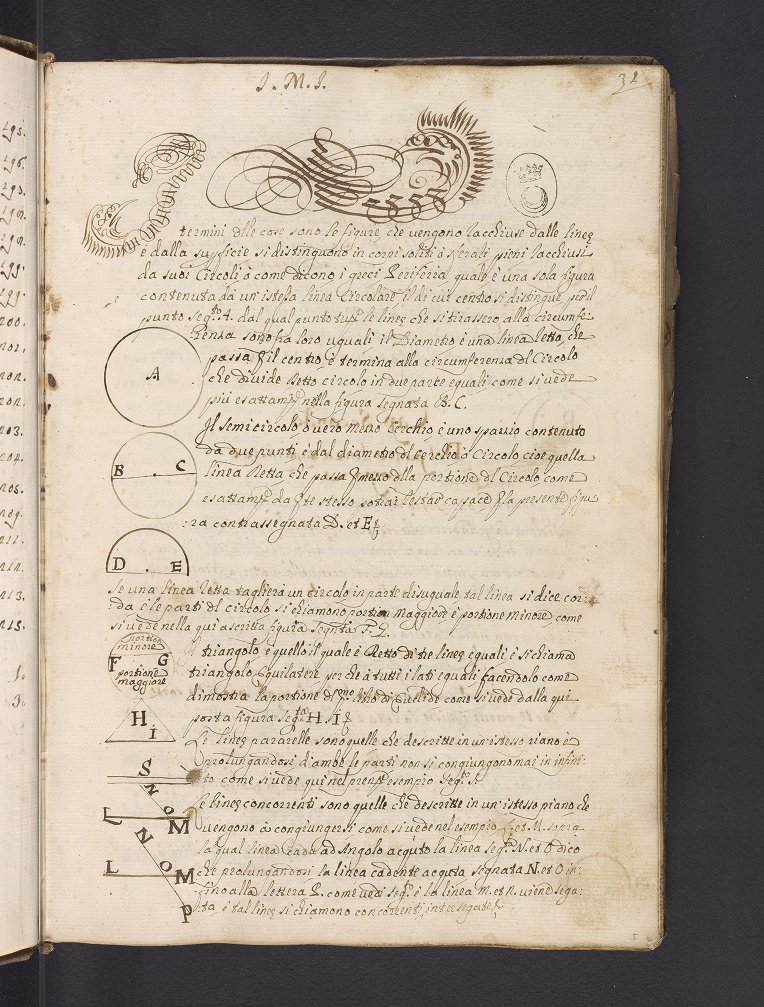 J. M. J.
31
termini delle cose sono le figure che vengono racchiuse dalle linee
e dalla superficie si distinguono in corpi soliti ò sferali pieni racchiusi
da suoi Circoli, ò come dicono i greci Periferia quale è una sola figura
contenuta da un'istessa linea Circolare il di cui centro si distingue per il
punto Seg.to A. dal qual punto tutte le linee che si tirassero alla circumfe
renza sono fra loro uguali il Diametro è una linea Retta, che
passa per il centro, e termina alla circumferenza del Circolo
che divide detto circolo in due parte equali come si vede
più esattam.te nella figura segnata B. C.
A
Il semicircolo ò vero mezzo Cerchio è uno spazzio contenuto
da due punti e dal diametro del Cerchio ò Circolo cioè quella
linea Retta che passa per mezzo della portione del Circolo come
esattam.te da per te stesso potrai restar capace per la presente figu
:ra contrassegnata D. et E
B . C
D . E
Se una linea Retta taglierà un circolo in parte disuguale tal linea si dice cor:
:da e le parti del circolo si chiamono portion maggiore è portione minore come
si vede nella qui ascritta figura segnata F. G.
portion
minore
F G
portione
maggiore
Il triangolo è quello il quale è Retto di tre linee equali, è si chiama
triangolo Equilatere perche à tutti i lati equali facendolo come
dimostra la portione del p.mo libro di Euclide come si vede dalla qui
posta figura seg.ta H. I.
H I
Le linee pararelle sono quelle che descritte in un'istesso piano è
prolungandosi d'ambe le parti non si congiungono mai in infini:
:to come si vede qui nel presente esempio Seg.to S.
S
Le linee concorrenti sono quelle che descritte in un'istesso piano che
vengono à congiungersi come si vede nel esempio L. et M. sopra
la qual linea cada ad Angolo acquto la linea seg.ta N. et O dico
che prolungandosi la linea cadente acquta segnata N. et O in:
:fino alla lettera P. come vedi seg.to e la linea M. et N. viene sega:
:ta è tal linee si chiamono concorrenti intersegate
N O
L M
N O
L M
P